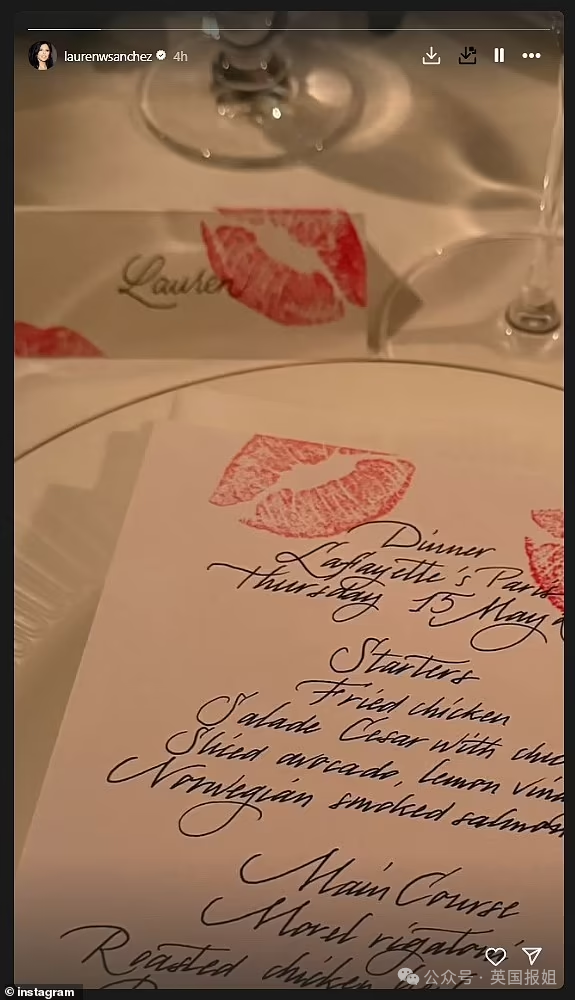 laurenwsanchez 4h
Lauren
Dinner
Lafayette's Paris
Thursday 15 May
Starters
Fried chicken
Salade César with
Sliced avocado, lemon
Norwegian smoked salmon
Main Course
Morel rigatoni
Roasted chicken
公众号 · 英国报姐
© instagram